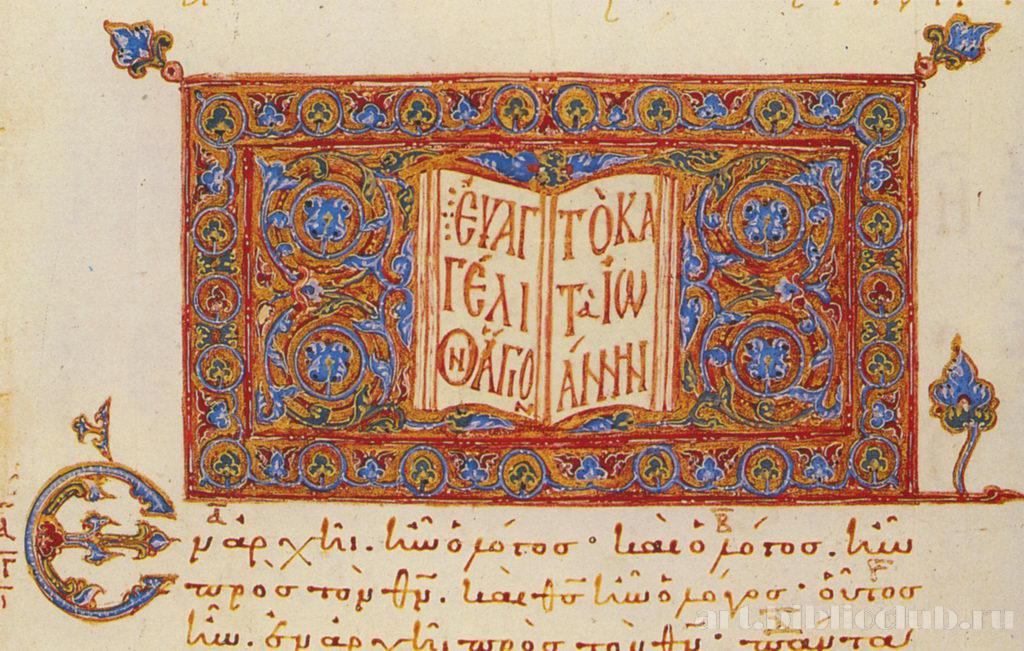 ἘΥΑΓ
ΓΈΛΙ
ΟΝ ἍΓΙΟΝ
ΤῸ ΚΑ
ΤᾺ ἸΩ
ΆΝΝΗΝ
Ἐν ἀρχῆι. ἦν ὁ λόγος· καὶ ὁ λόγος. ἦν
πρὸς τὸν θ̅ν̅. καὶ θ̅ς̅ ἦν ὁ λόγος· οὗτος
ἦν. ἐν ἀρχῆι πρὸς τὸν θ̅ν̅· πάντα
art.biblioclub.ru